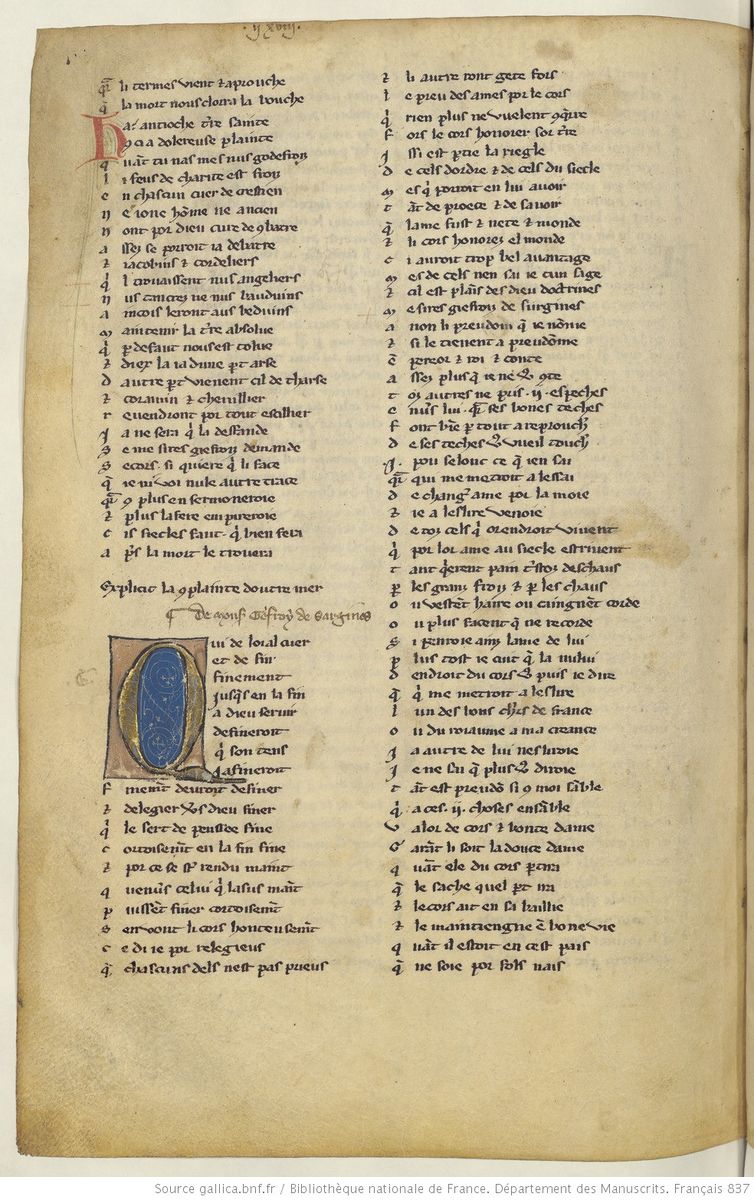 .ij xviij.
qͬ li termes vient ⁊ aprouche
q̃ la mort nous clorra la bouche
ha! antioche t̾re sainte
9 ci a dolereuse plainte
quãt tu nas mes nus godefroiz
li feus de charite est froiz
en chascun cuer de crestien
ne ione hõme ne ancien
nont por dieu cure de 9batre
assez se porroit ia debatre
⁊ iacobins ⁊ cordeliers
q̓l trouaissent nus angeliers
nus tancrez ne nus bauduins
aincois leront aus beduins
maintenir la t̾re absolue
q̓ p̱ defaut nous est tolue
⁊ diex la ia dune p̱t arse
dautre p̱t vienent cil de tharse
⁊ coramin ⁊ chenillier
reuendront por tout escillier
ja ne sera q̓ la deffande
se mesires giefroiz demande
secors. si quiere q̓ li face
q̃ ie ni voi nule autre trace
qͬ 9 plus en sermoneroie
⁊ plus lafere empireroie
cis siecles faut. q̓ bien fera
ap̾s la mort le trouera
Explicit la 9plainte doutre mer
¶ De mons̾ Gefroy de Sargines
Qui de loial cuer
et de fin
finement
jusq̃s en la fin
a dieu seruir
defineroit
q̓ son tens
i afineroit
⁊ de legier v̾s dieu finer
q̓ le sert de penssee fine
cortoisem̃t en la fin fine
⁊ por ce se st̾ rendu maint
q uenũs celui q̓ lasus maĩt
puissent finer cortoisem̃t
sen vont li cors honteusem̃t
ce di ie por relegieus
q̃ chascuns dels nest pas prieus
⁊ li autre ront gete fors
le preu des ames por le cors
q̓ rien plus ne vuelent 9q̃rre
fors le cors honorer sor t̾re
jssi est p̱tie la riegle
de cels dordre ⁊ de cels du siecle
mes q̓ porroit en lui auoir
tãt de proece ⁊ de sauoir
q̃ lame fust ⁊ nete ⁊ monde
⁊ li cors honorez el monde
ci auroit trop bel auantage
mes de cels nen sai ie cun sage
⁊ cil est plaĩs des dieu doctrines
mesires giefroiz de surgines
a non li preudom q̃ ie nõme
⁊ si le tienent a preudõme
ẽpereor ⁊ roi ⁊ conte
assez plus q̃ ie ne v̾ 9te
toz autres ne pris .ij. espeches
en u̾s lui. qͬ ses bones teches
font bñ p̱ tout a reprouch̾
de ses teches v̾ vueil touch̾
.j. pou selonc ce q̃ ien sai
qͬ qui me metroit a lessai
de chang̾ ame por la moie
⁊ ie a leslire venoie
de toz cels q̓ orendroit viuent
q̓ por lor ame au siecle estriuent
tant q̾rent pain t̃stoz deschaus
p̱ les granz froiz ⁊ p̱ les chaus
ou vestẽt haire ou caingnẽt corde
ou plus facent q̃ ne recorde
si penroie ainz lame de lui
plus tost ie cuit q̃ la nului
dendroit du cors v̾ puis ie dire
q̃ q̓ me metroit a leslire
lun des bons ch̾rs de france
ou du roiaume a ma creance
ja autre de lui nesliroie
je ne sai q̃ plus v̾ diroie
tãt est preudõ si 9 moi sãble
q̓ a ces .ij. choses ensãble
valor de cors ⁊ bonte dame
garãt li soit la douce dame
quãt ele du cors p̱tira
q̃ le sache quel p̱t ira
⁊ le cors ait en sa baillie
⁊ le maintiengne ẽ bone vie
quãt il estoit en cest pais
q̃ ne soie por fols nais
Source gallica.bnf.fr / Bibliothèque nationale de France. Département des Manuscrits. Français 837